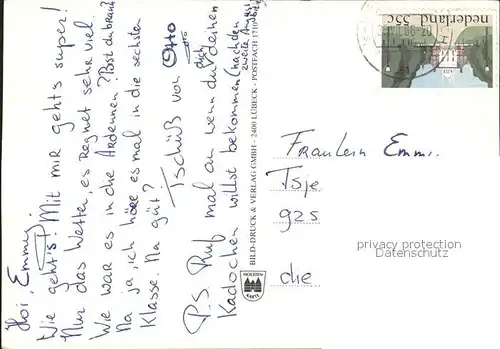 Hoi, Emmy!
Wie geht's? Mit mir geht's super!
Nur das Wetter, es regnet sehr viel.
Wie war es in die Ardennen? Bist du braun?
Na ja, ich höre es mal in die sechsten
Klasse. Na gut?
Tschüß von Otto
P.S. Ruf mal an wenn du deinen
Kadochen willst bekommen (nach den
zweite August
BILD-DRUCK & VERLAG GMBH · 2400 LÜBECK · POSTFACH 1710
HOLSTEN KARTE
nederland 55c
Fraulein Emmi
Tsje
gzs
che
privacy protection
Datenschutz